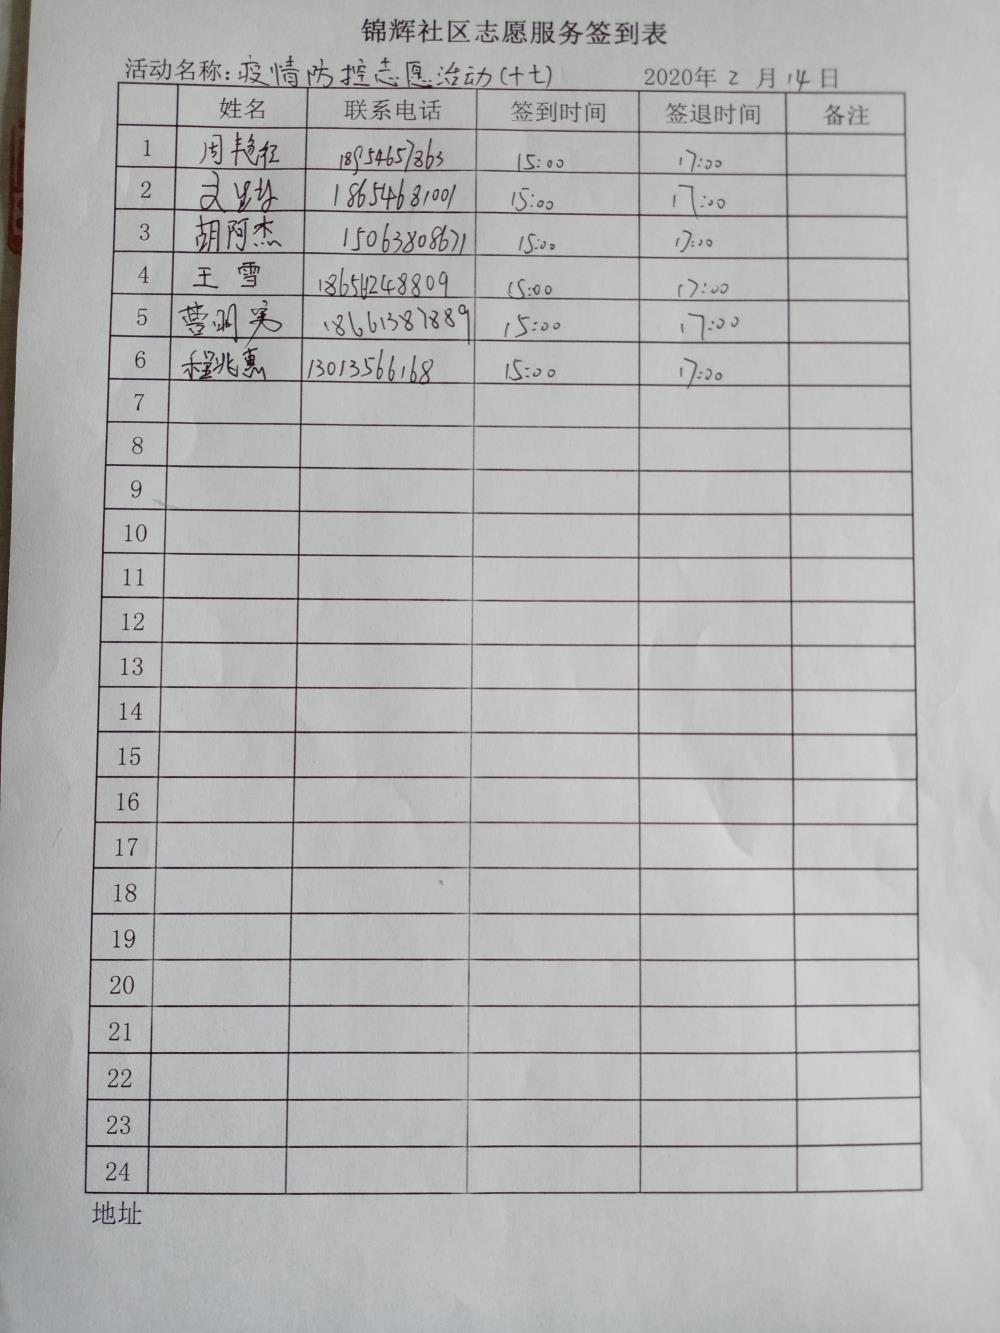 锦辉社区志愿服务签到表
活动名称：疫情防控志愿活动(十七) 2020年 2 月 14 日
姓名 联系电话 签到时间 签退时间 备注
1 周艳红 18954657863 15:00 17:00
2 18654681001 15:00 17:00
3 胡阿杰 15063808671 15:00 17:00
4 王雪 15:00 17:00
5 曹 18661387889 15:00 17:00
6 程兆惠 13013566168 15:00 17:00
7
8
9
10
11
12
13
14
15
16
17
18
19
20
21
22
23
24
地址